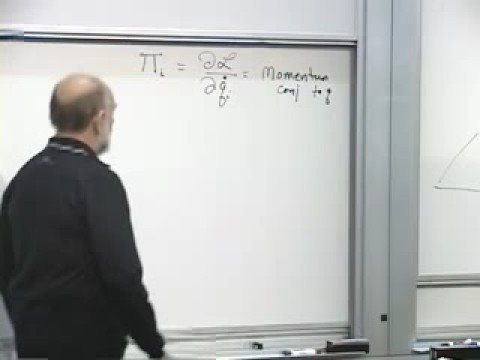 Πᵢ = ∂ℒ/∂q̇ᵢ = Momentum
conj to q